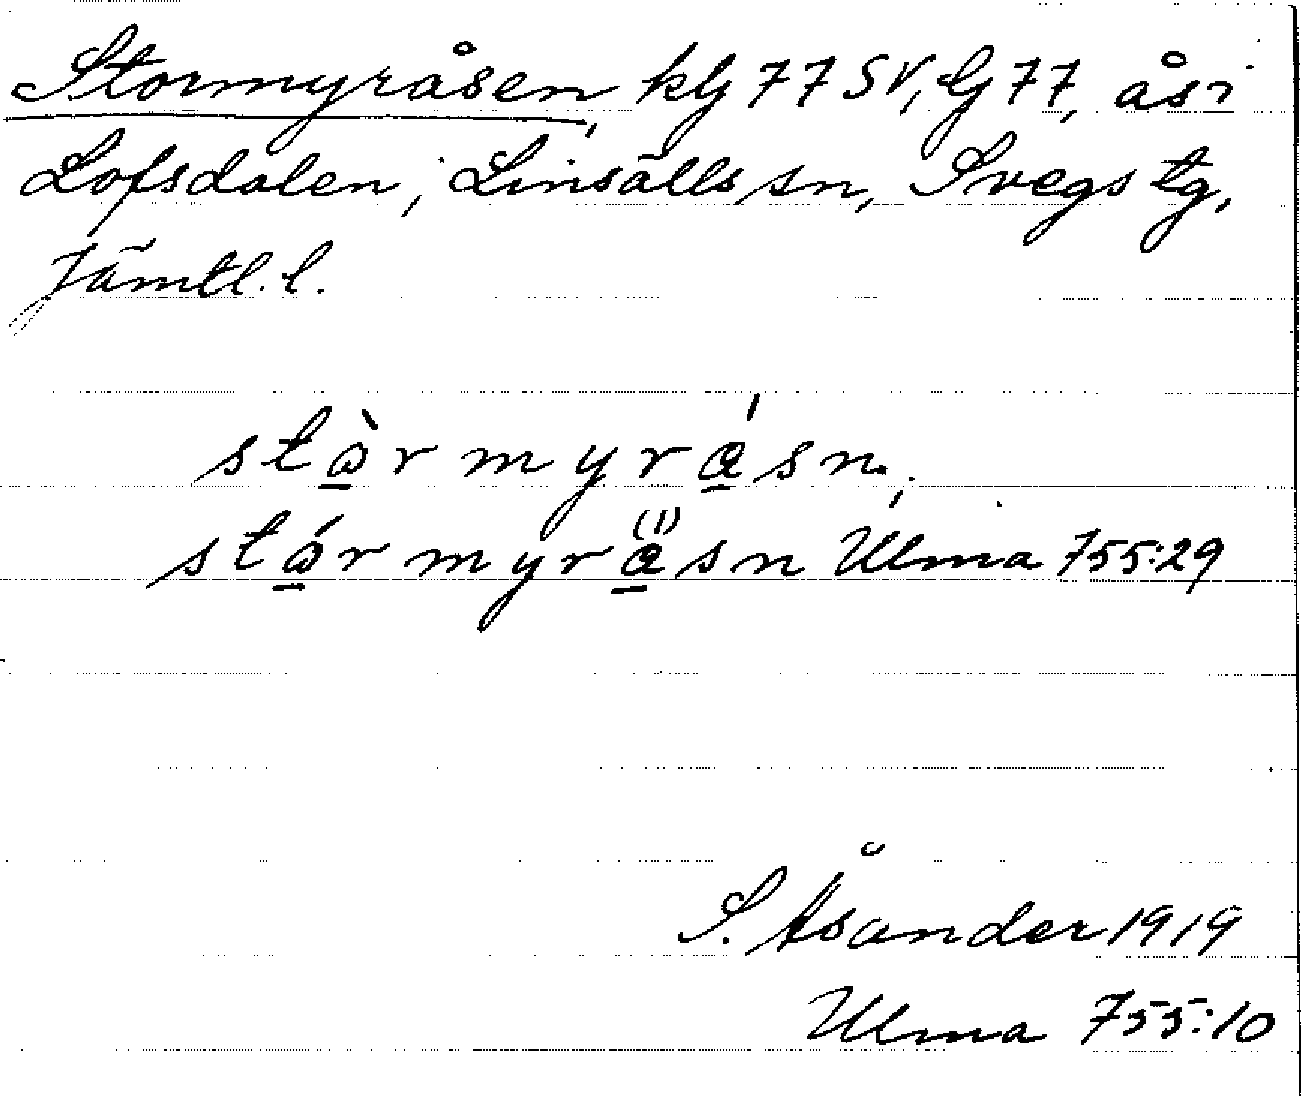 Stormyråsen, kG 77 SV, G 77, ås i
Lofsdalen, Linsälls sn, Svegs tg,
Jämtl. l.
stò̱rmyrá̱sn,
stó̱rmyrä̱sn Ulma 755:29
S. Åsander 1919
Ulma 755:10